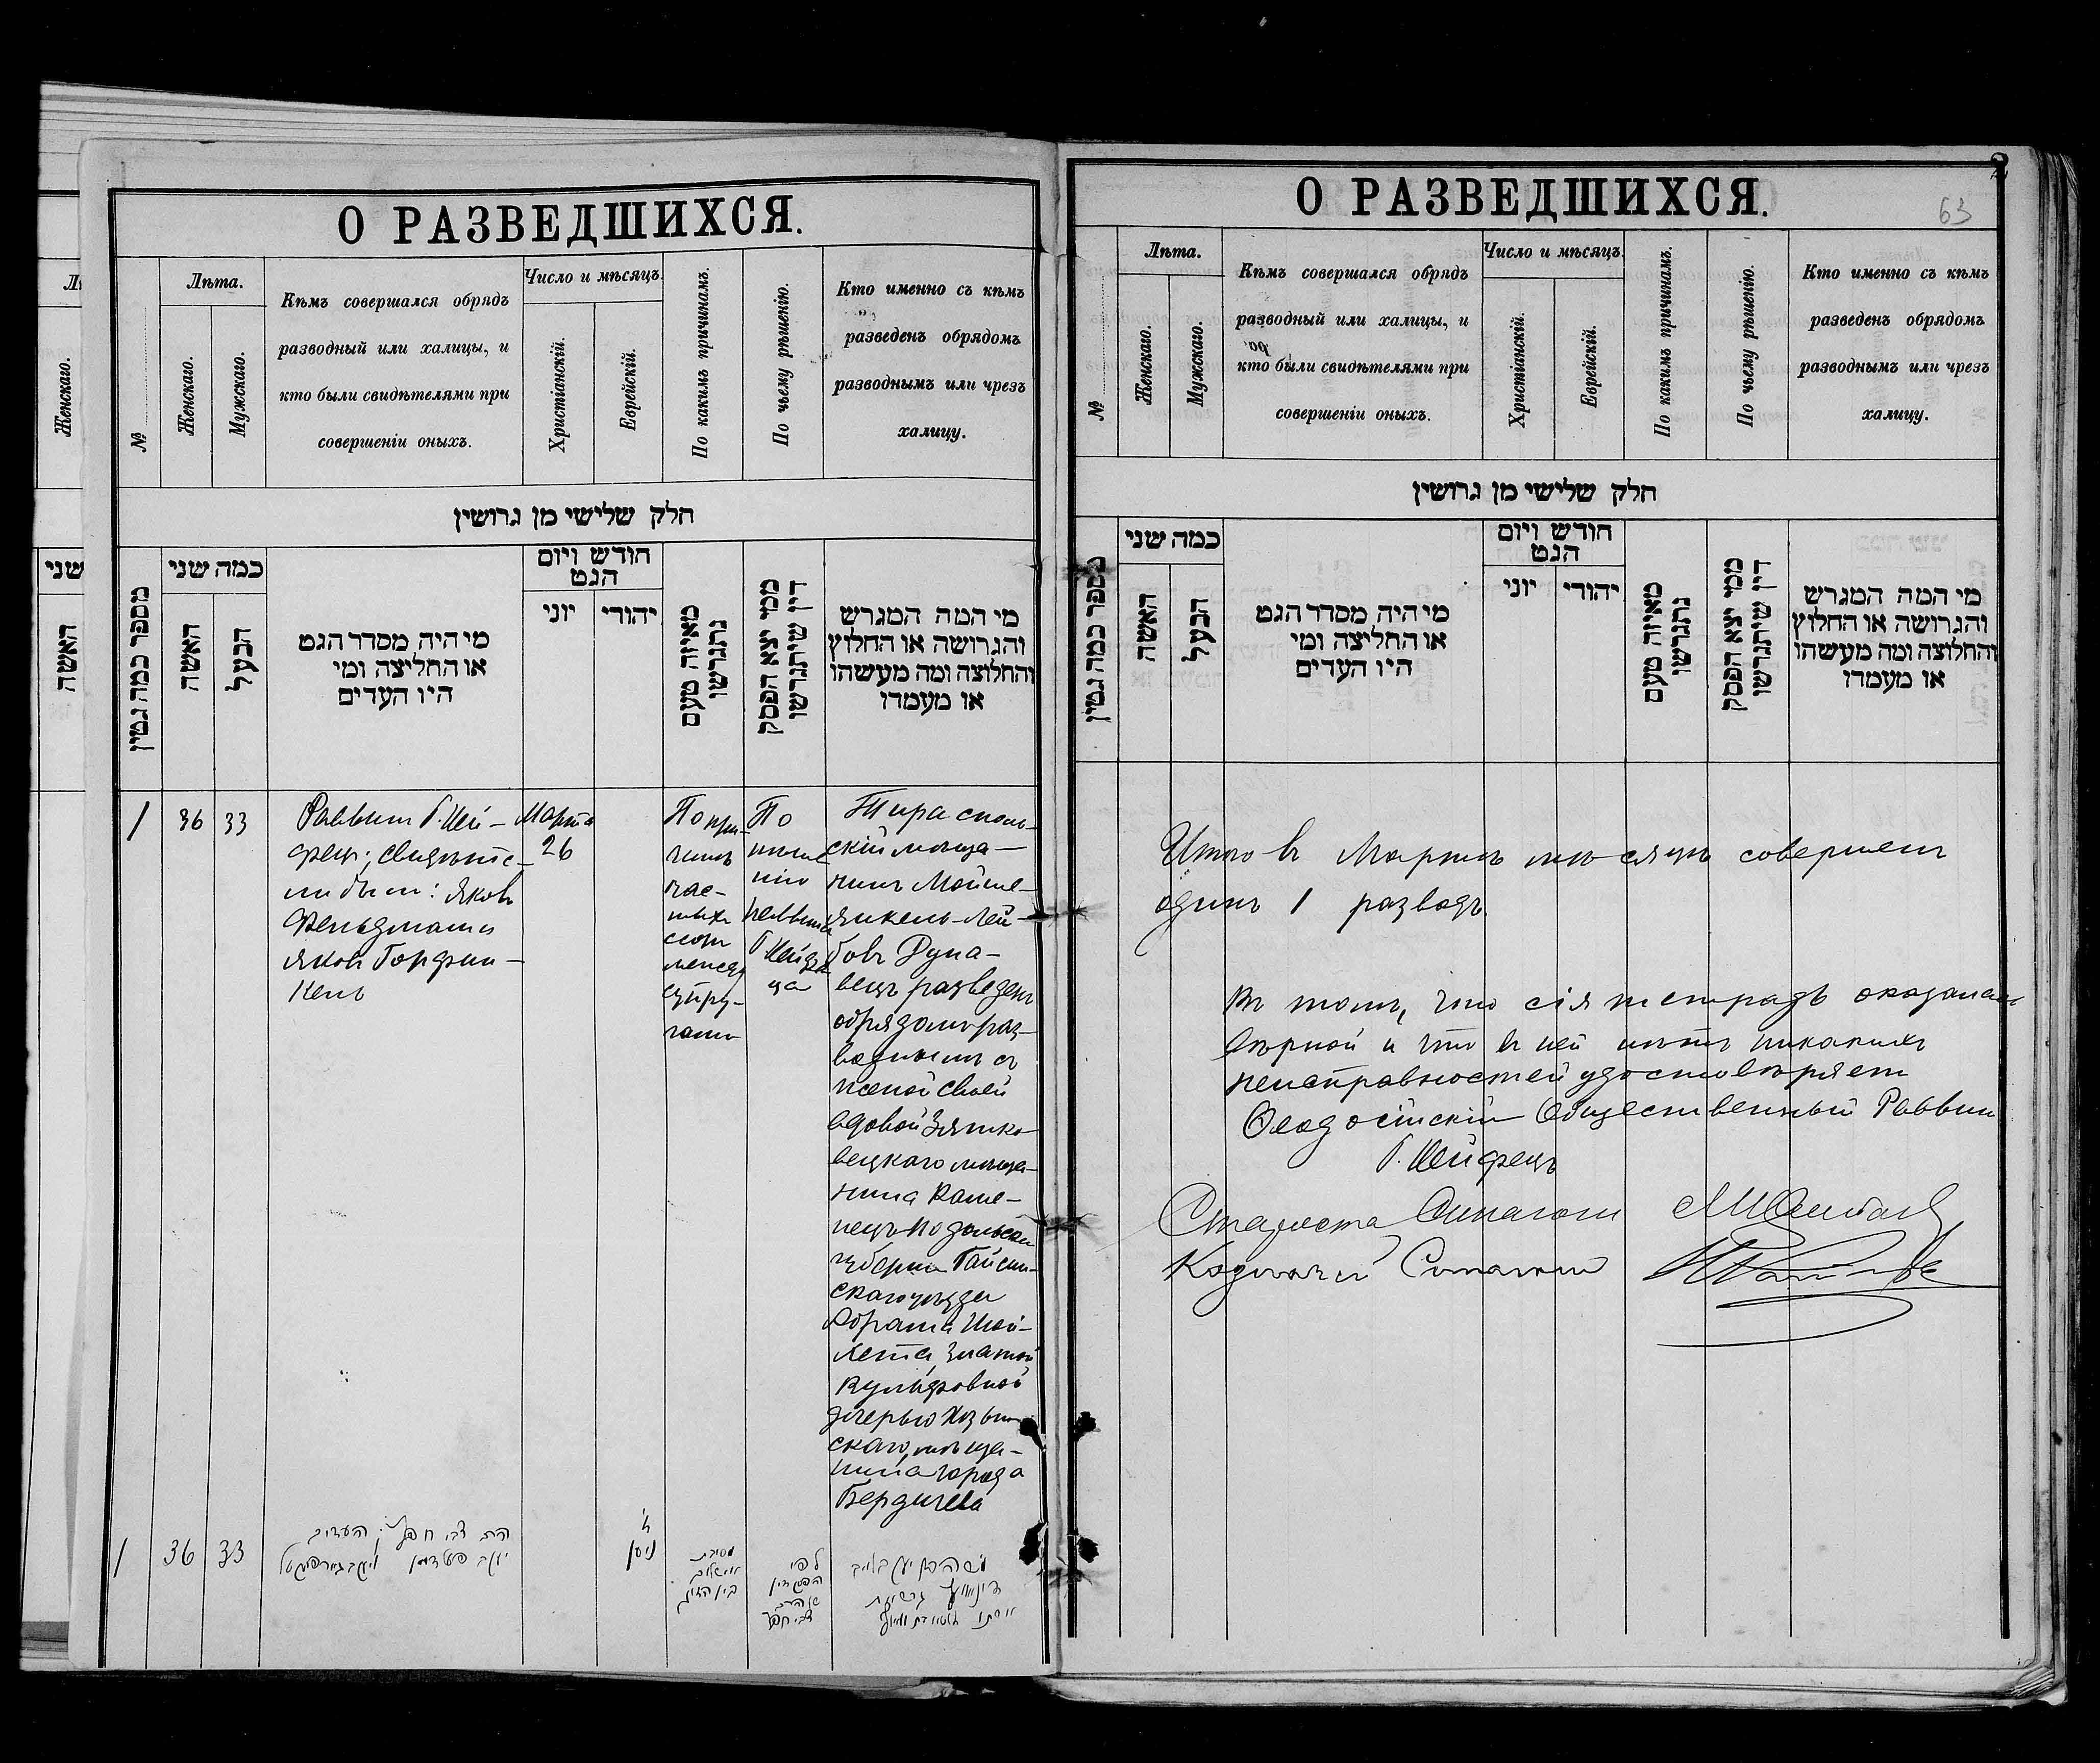 О РАЗВЕДШИХСЯ.
№
Лѣта.
Женскаго.
Мужскаго.
Кѣмъ совершался обрядъ
разводный или халицы, и
кто были свидѣтелями при
совершеніи оныхъ.
Число и мѣсяцъ.
Христіанскій.
Еврейскій.
По какимъ причинамъ.
По чьему рѣшенію.
Кто именно съ кѣмъ
разведенъ обрядомъ
разводнымъ или чрезъ
халицу.
חלק שלישי מן גרושין
מספר כמה גטין
כמה שני
האשה
הבעל
מי היה מסדר הגט
או החליצה ומי
היו העדים
חודש ויום
הגט
יוני
יהודי
מאיזה טעם
נתגרשו
ממי יצא הפסק
דין שיתגרשו
מי המה המגרש
והגרושה או החלוץ
והחלוצה ומה מעשהו
או מעמדו
1
36
33
Раввин Г. Кей-
фец; свидѣте-
ли были: Яковъ
Фельдман и
Яковъ Горфин-
кель
Марта
26
По при-
чинѣ
час-
тыхъ
ссоръ
между
супру-
гами
По
рѣше
нію
раввина
Г. Кейфе
ца
Тирасполь-
скій мѣща-
нинъ Мойше-
Янкель-Лей-
бовъ Дуна-
вецъ разведенъ
обрядомъ раз-
воднымъ съ
женой своей
вдовой Зятко-
вецкаго мѣща-
нина Каме-
нецъ-Подольской
губерніи Гайсин-
скаго уѣзда
Абрама
Златой
дочерью
скаго мѣща-
нина города
Бердичева
1
36
33
הרב צבי חפץ: העדים
יעקב פעלדמאן ויעקב גורפינקעל
ניסן
מסיבת
בין הזוג
לפי
הפסק דין
של הרב
צבי חפץ
משה יעקב לייב
О РАЗВЕДШИХСЯ.
2
63
№
Лѣта.
Женскаго.
Мужскаго.
Кѣмъ совершался обрядъ
разводный или халицы, и
кто были свидѣтелями при
совершеніи оныхъ.
Число и мѣсяцъ.
Христіанскій.
Еврейскій.
По какимъ причинамъ.
По чьему рѣшенію.
Кто именно съ кѣмъ
разведенъ обрядомъ
разводнымъ или чрезъ
халицу.
חלק שלישי מן גרושין
מספר כמה גטין
כמה שני
האשה
הבעל
מי היה מסדר הגט
או החליצה ומי
היו העדים
חודש ויום
הגט
יוני
יהודי
מאיזה טעם
נתגרשו
ממי יצא הפסק
דין שיתגרשו
מי המה המגרש
והגרושה או החלוץ
והחלוצה ומה מעשהו
או מעמדו
Итого въ Мартѣ мѣсяцѣ совершенъ
одинъ 1 разводъ.
Въ томъ, что сія тетрадь оказалась
вѣрной и что въ ней нѣтъ никакихъ
неисправностей удостовѣряетъ
Ѳеодосійскій Общественный Раввинъ
Г. Кейфецъ
Староста Синагоги
Казначей Синагоги
Лѣ
Женскаго.
שני
האשה